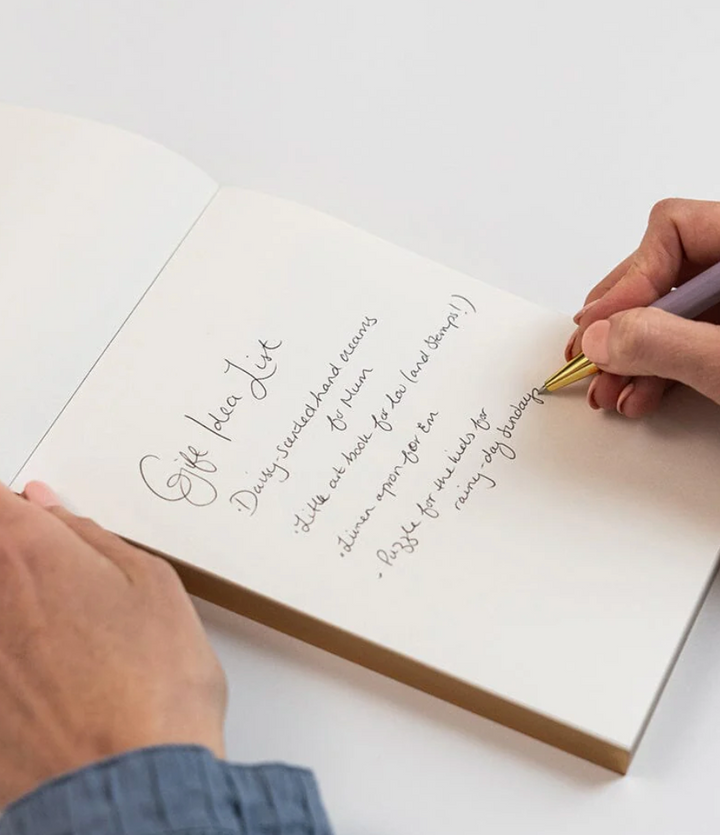 Gift Idea List
· Daisy-scented hand creams
for Mum
· Little art book for Lou (and stamps!)
· Linen apron for Em
· Puzzle for the kids for
rainy-day Sundays